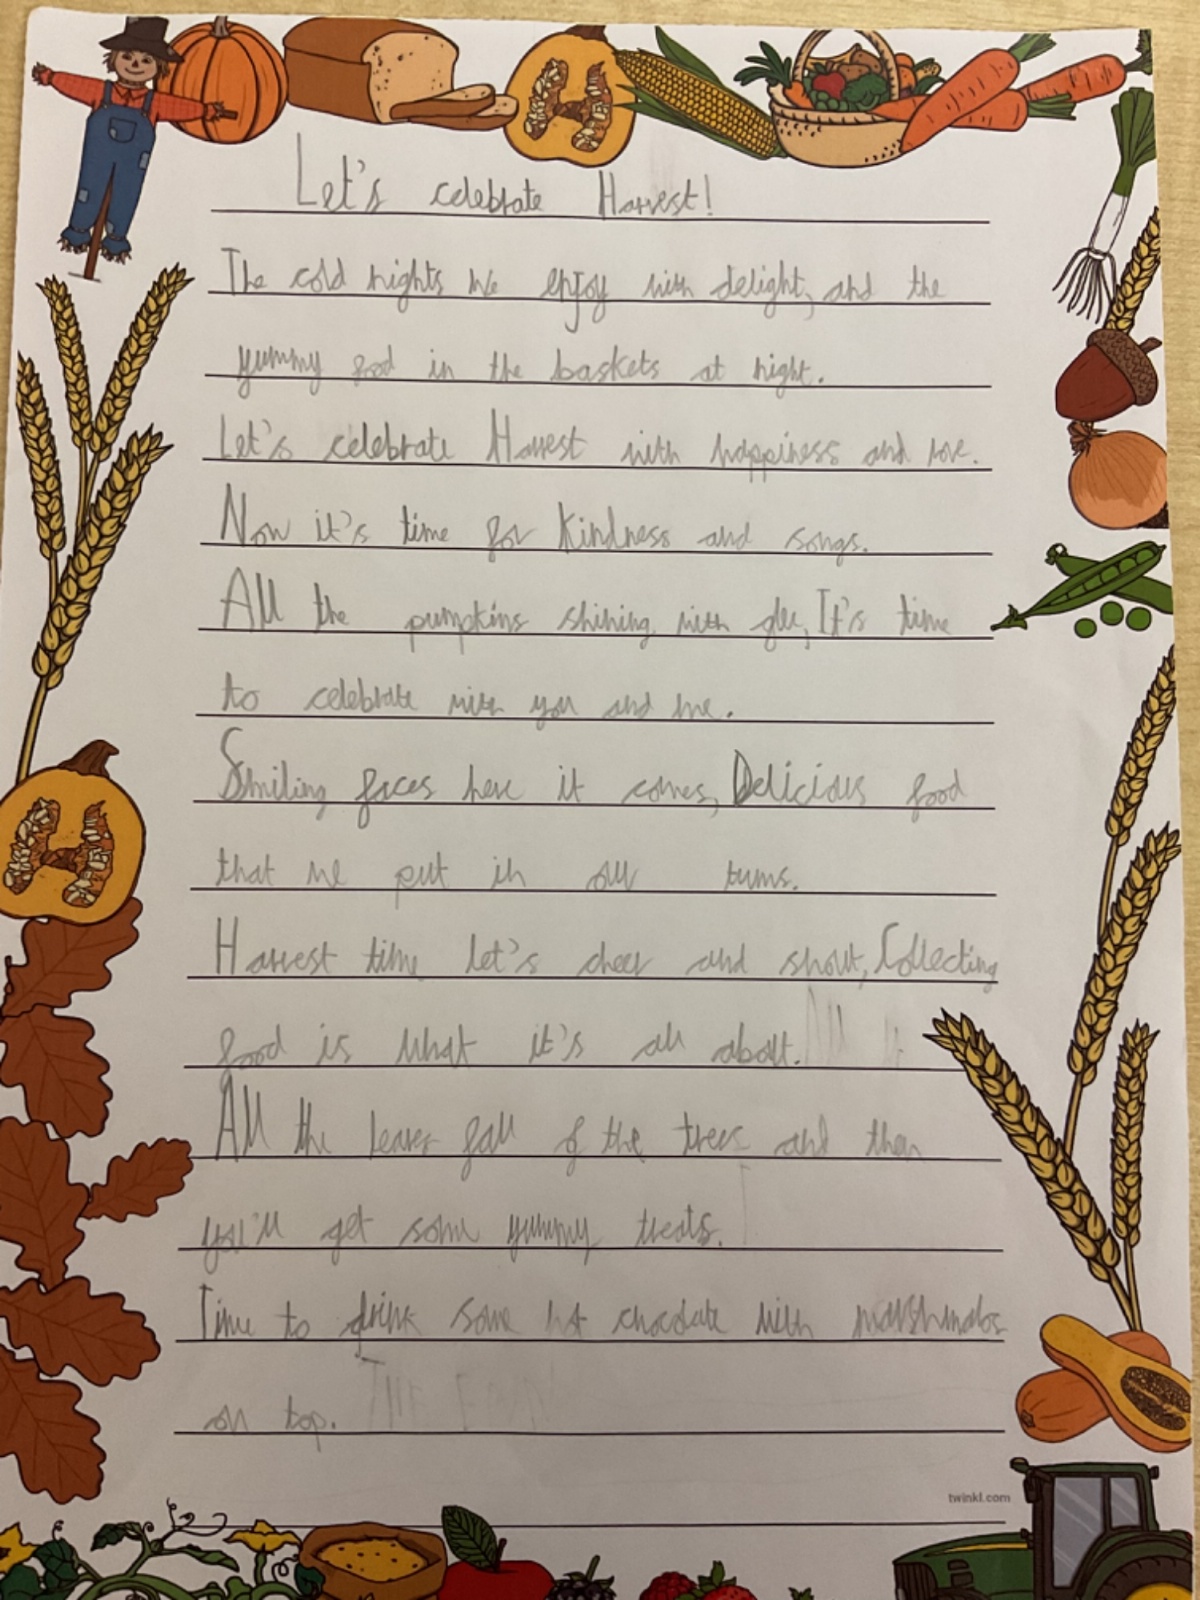 Let's celebrate Harvest!
The cold nights we enjoy with delight, and the
yummy food in the baskets at night.
Let's celebrate Harvest with happiness and love.
Now it's time for kindness and songs.
All the pumpkins shining with glee, It's time
to celebrate with you and me.
Smiling faces here it comes, Delicious food
that we put in our tums.
Harvest time let's cheer and shout, Collecting
food is what it's all about.
All the leaves fall of the trees and then
you'll get some yummy treats.
Time to drink some hot chocolate with marshmalos
on top.
twinkl.com